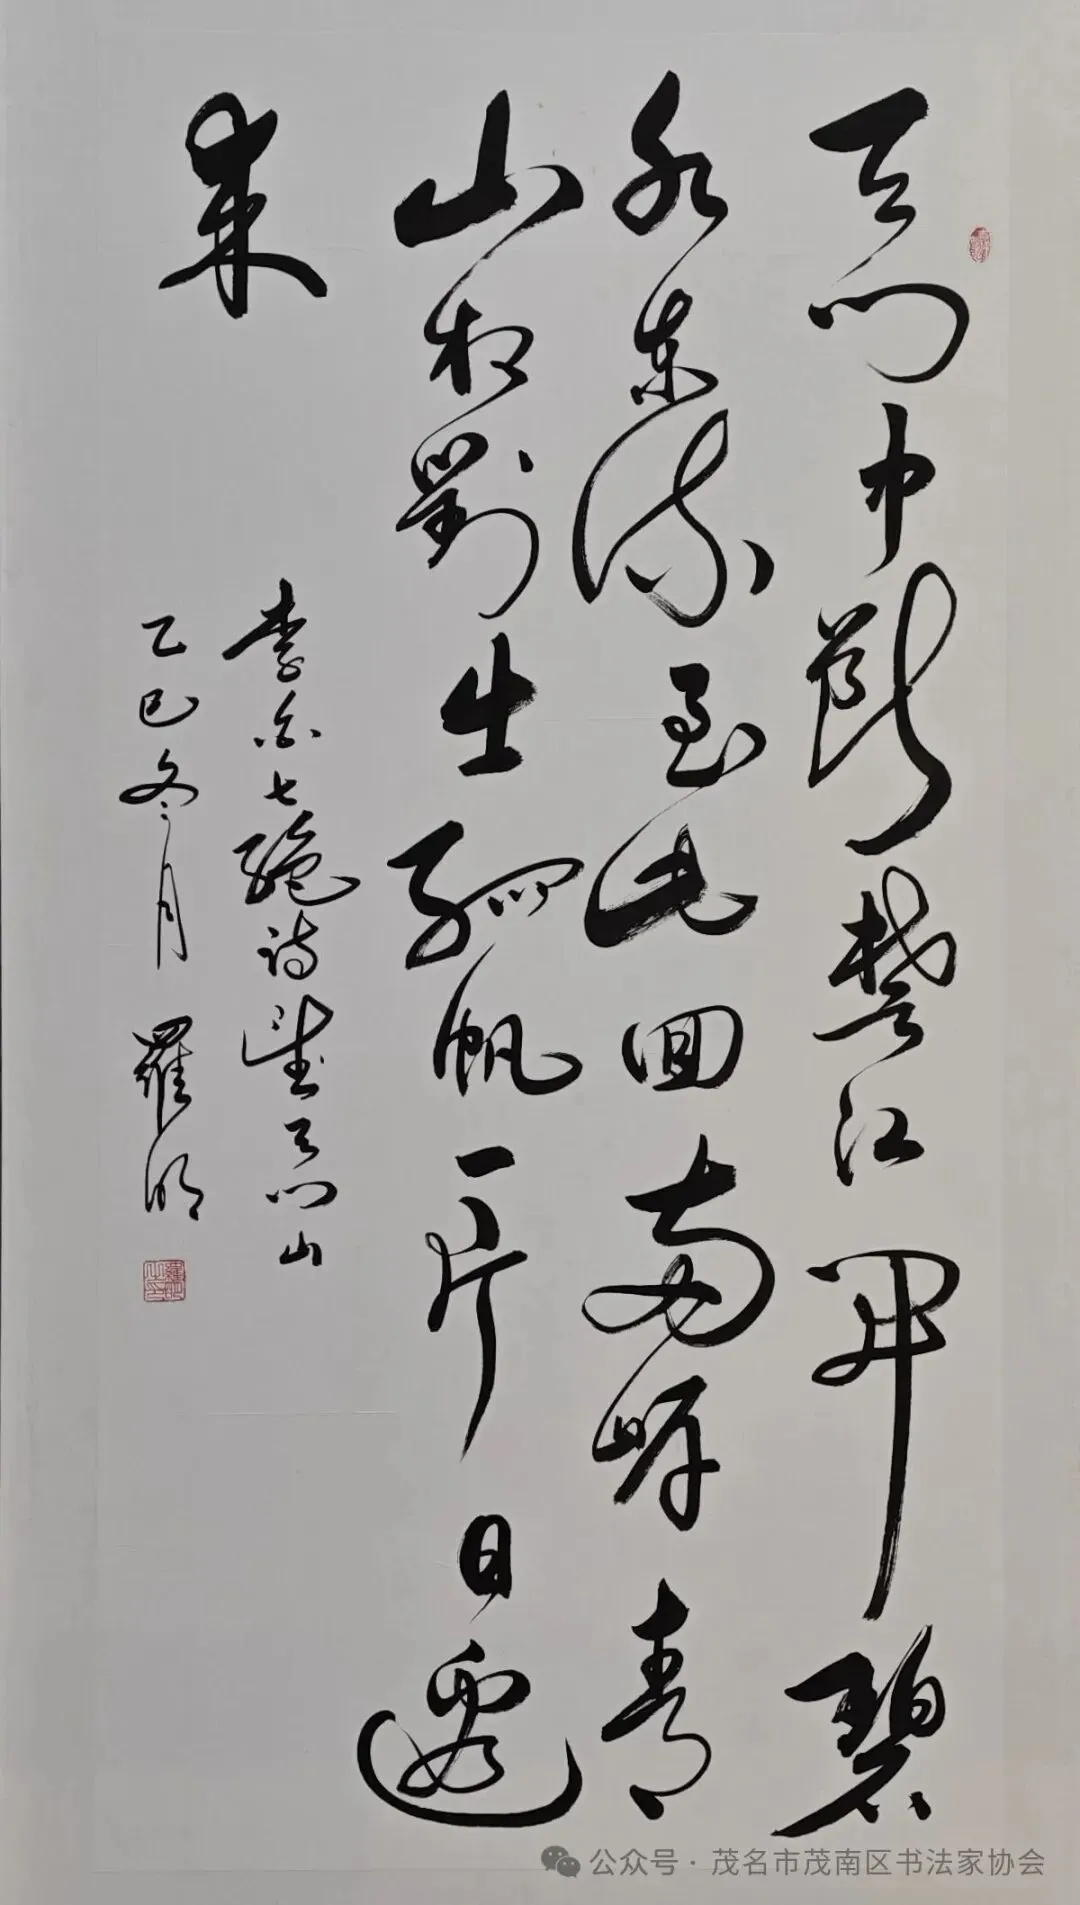 天门中断楚江開碧
水东流至此回两岸青
山相對出孤帆一片日邊
来
李白七絶诗望天门山
乙巳冬月 羅明
公众号·茂名市茂南区书法家协会